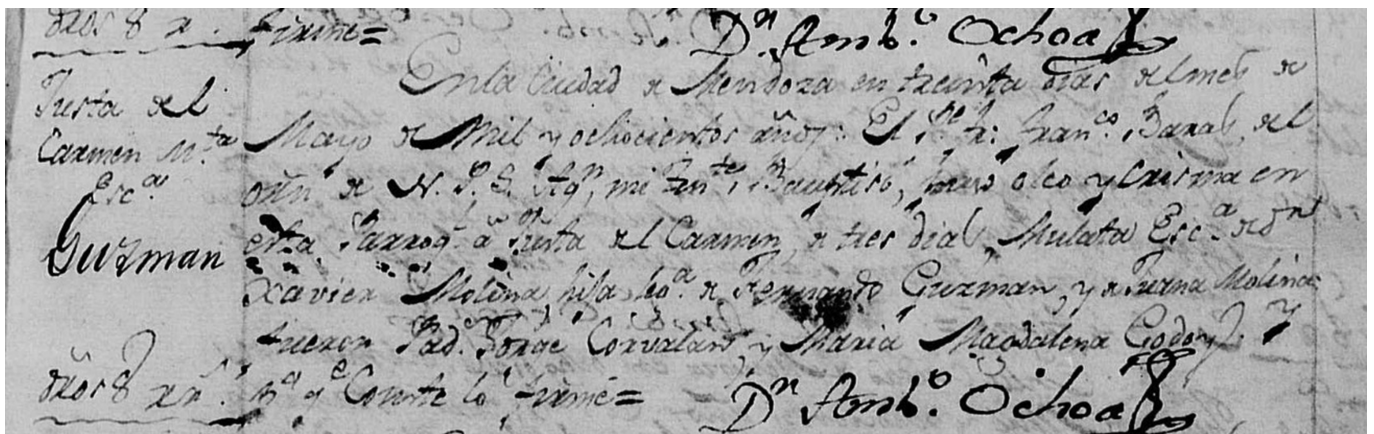 dros 8 rr. firmé=
Dn. Amb.o Ochoa
Justa del
Carmen M.ta
Esc.a
Guzman
En la Ciudad de Mendoza en treinta dias del mes de
Mayo de Mil y ochocientos años: El Fr. Fran.co Baras del
orñ de N. P. S. Agn, mi Ten.te, Bautisó, puso oleo y Crisma en
esta Parroq.a à Justa del Carmen, de tres dias, Mulata Esc.a de dn
Xavier Molina hija lex.a de Fernando Guzman, y de Juana Molina
fueron Pad. Jorge Corvalan, y Maria Magdalena Godoy. Y
dros 8 rr. p.a q.e Conste lo firmé=
Dn Amb.o Ochoa